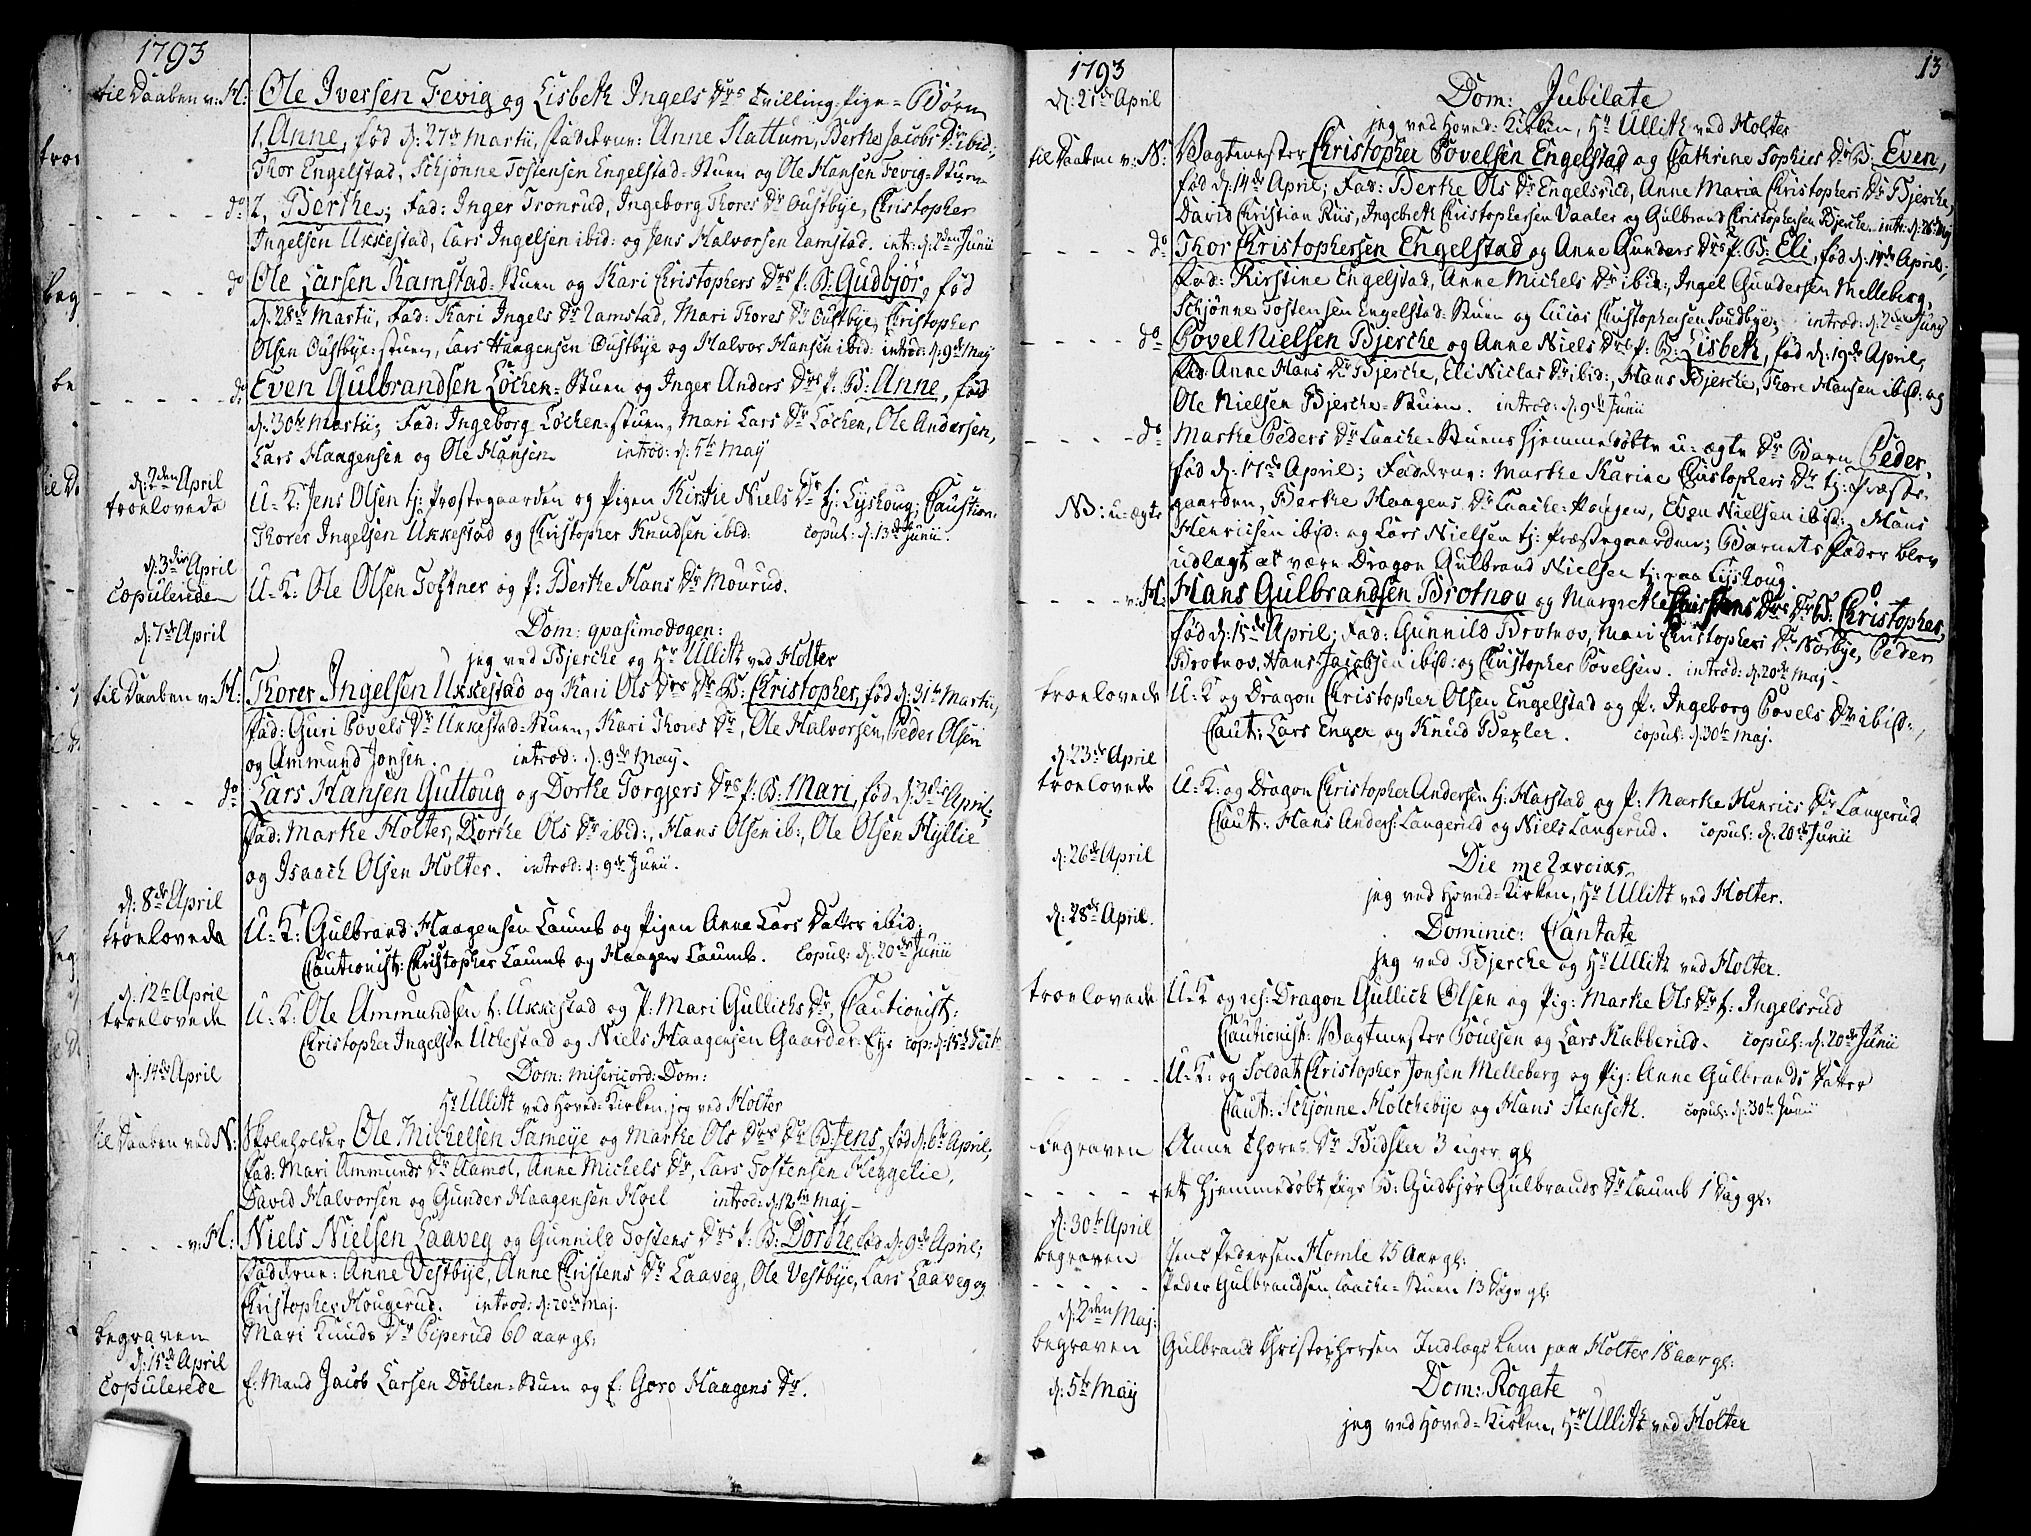 1793
til Daaben v: H: Ole Iversen Fevig og Lisbeth Ingels Drs Tvilling Pige-Børn
1, Anne, fød d: 27de Martii, Faddrene: Anne Slattum, Berthe Jacobs Dr ibid:,
Thor Engelstad, Schjønne Tostensen Engelstad-Stuen og Ole Hansen Fevig-Stuen
do 2, Berthe; Fad: Inger Tronrud, Ingeborg Thores Dr Oustbye, Christopher
Ingelsen Ukkestad, Lars Ingelsen ibid: og Jens Halvorsen Ramstad. intr: d: 2den Junii
do Ole Larsen Ramstad-Stuen og Kari Christophers Drs P. B: Gudbjør, fød
d: 28de Martii, Fad: Kari Ingels Dr Ramstad, Mari Thores Dr Oustbye, Christopher
Olsen Oustbye-stuen, Lars Haagensen Oustbye og Halvor Hansen ibid: introd: d: 9de May
do Even Gulbrandsen Løchen-Stuen og Inger Anders Drs P. B: Anne, fød
d: 30te Martii; Fad: Ingeborg Løchen-stuen, Mari Lars Dr Løchen, Ole Andersen,
Lars Haagensen og Ole Hansen introd: d: 5te May
d: 2den April
troelovede U-K: Jens Olsen tj: Præstegaarden og Pigen Kirstie Niels Dr tj: Lyshoug; Caution:
Thores Ingelsen Ukkestad og Christopher Knudsen ibid: copul: d: 13de Junii.
d: 3die April
Copulerede U-K: Ole Olsen Tofsner og P: Berthe Hans Dr Mourud.
d: 7de April Dom: qvasimodogen:
jeg ved Bjerche og Hr Ullitz ved Holter
til Daaben v: H: Thorer Ingelsen Ukkestad og Kari Ols Drs Dr B: Christopher, fød d: 31te Martii,
Fad: Guri Povels Dr Ukkestad-Stuen, Kari Thores Dr, Ole Halvorsen, Peder Olsen
og Ammund Jonsen. introd: d: 9de May.
do Lars Hansen Guttoug og Dorthe Torgjers Drs P: B: Mari, fød d: 3die April,
Fad: Marthe Holter, Dorthe Ols Dr ibid:, Hans Olsen ib:, Ole Olsen Hyllie
og Isaach Olsen Holter. introd: d: 9de Junii.
d: 8de April
troelovede U-K: Gulbrand Haagensen Laumb og Pigen Anne Lars Datter ibid:
Cautionist: Christopher Laumb og Haagen Laumb. Copul: d: 20de Junii
d: 12te April
troelovede U-K: Ole Ammundsen t: Ukkestad og P: Mari Gullichs Dr, Cautionist:
Christopher Ingelsen Uchestad og Niels Haagensen Gaarder-Eye cop: d: 15de
d: 14de April Dom: Misericord: Dom:
Hr Ullitz ved Hoved-Kirken, jeg ved Holter
til Daaben ved N: Skoleholder Ole Michelsen Sameye og Marthe Ols Drs Dr B: Jens, fød d: 6te April,
Fad: Mari Ammunds Dr Aamot, Anne Michels Dr, Lars Tostensen Heggelie,
David Halvorsen og Gunder Haagensen Hoel introd: d: 12te Maj
v: H: Niels Nielsen Laaveg og Gunnild Tostens Drs P. B: Dorthe, fød d: 9de April;
Faddrene: Anne Vestbye, Anne Christens Dr Laaveg, Ole Vestbye, Lars Laaveg og
Christopher Hougerud. introd: d: 20de Maj.
begraven Mari Knuds Dr Piperud 60 aar gl:
d: 15de April
Copulerede E: Mand Jacob Larsen Døhlen-Stuen og E: Goro Haagens Dr.
1793 13
d: 21de April Dom: Jubilate
jeg ved Hoved-Kirken, Hr Ullitz ved Holter
til Daaben v: N: Vagtmester Christopher Povelsen Engelstad og Cathrine Sophies Dr B: Even,
fød d: 14de April; Fad: Berthe Ols Dr Engelsrud, Anne Maria Christophers Dr Bjerche,
David Christian Riis, Ingebreth Christophersen Vaaler og Gulbrand Christophersen Bjerche. intr: d: 26de Maj
do Thor Christophersen Engelstad og Anne Gunders Drs P. B: Eli, fød d: 14de April;
Fad: Kirstine Engelstad, Anne Michels Dr ibid:, Ingel Gundersen Melleberg,
Schjønne Tostensen Engelstad-Stuen og Lucas Christophersen Sundbye; introd: d: 2den Junij
do Povel Nielsen Bjerche og Anne Niels Drs P. B: Lisbeth, fød d: 19de April,
Fad: Anne Hans Dr Bjerche, Eli Niclas Dr ibid:, Hans Bjerche, Thore Hansen ibid: og
Ole Nielsen Bjerche-Stuen. introd: d: 9de Junii
do Marthe Peders Dr Laache-Stuens hjemmedøbte u-ægte Dr Barn Peder,
fød d: 17de April; Faddrene: Marthe Karine Christophers Dr tj: Præste-
NB: u-ægte gaarden, Berthe Haagens Dr Laache-Hougen, Even Nielsen ibid:, Hans
Henrichsen ibid: og Lars Nielsen tj: Præstegaarden; Barnets Fader blev
udlagt at være Dragon Gulbrand Nielsen tj: paa Lyshoug.
v: H: Hans Gulbrandsen Brotnov og Margrethe Christens Drs Dr B: Christopher,
fød d: 15de April; Fad: Gunnild Brotnov, Mari Christophers Dr Norbye, Peder
Brotnov, Hans Jacobsen ibid: og Christopher Povelsen. introd: d: 20de Maj
troelovede U-K og Dragon Christopher Olsen Engelstad og P: Ingeborg Povels Dr ibid:,
Caut: Lars Enger og Knud Bexler. copul: d: 30te Maj.
d: 23de April
troelovede U-K: og Dragon Christopher Andersen tj: Harstad og P: Marthe Henrics Dr Langerud
Caut: Hans Anders: Langerud og Niels Langerud. copul: d: 20de Junii
d: 26de April Die μετανοίας
jeg ved Hoved-Kirken, Hr Ullitz ved Holter.
d: 28de April. Dominic: Cantate
jeg ved Bjerche og Hr Ullitz ved Holter.
troelovede U-K og res: Dragon Gullich Olsen og Pig: Marthe Ols Dr t: Ingelsrud
Cautionist: Vagtmester Poulsen og Lars Kabberud. copul: d: 20de Junii
U-K: og Soldat Christopher Jonsen Melleberg og Pig: Anne Gulbrands Datter
Caut: Schjønne Holchebye og Hans Stenseth. copul: d: 30te Junii
begraven Anne Thores Dr Bidsler 3 uger gl
et hjemmedøbt Pige B: Gudbjør Gulbrands Dr Laumb 1 Dag gl:
d: 30te April
begraven Jens Pedersen Homle 25 Aar gl:
Peder Gulbrandsen Laache-Stuen 13 Dage gl:
d: 2den Maj:
begraven Gulbrand Christophersen Indlogs Lem paa Holter 18 aar gl:
d: 5te May Dom: Rogate
jeg ved Hoved-Kirken, Hr Ullitz ved Holter